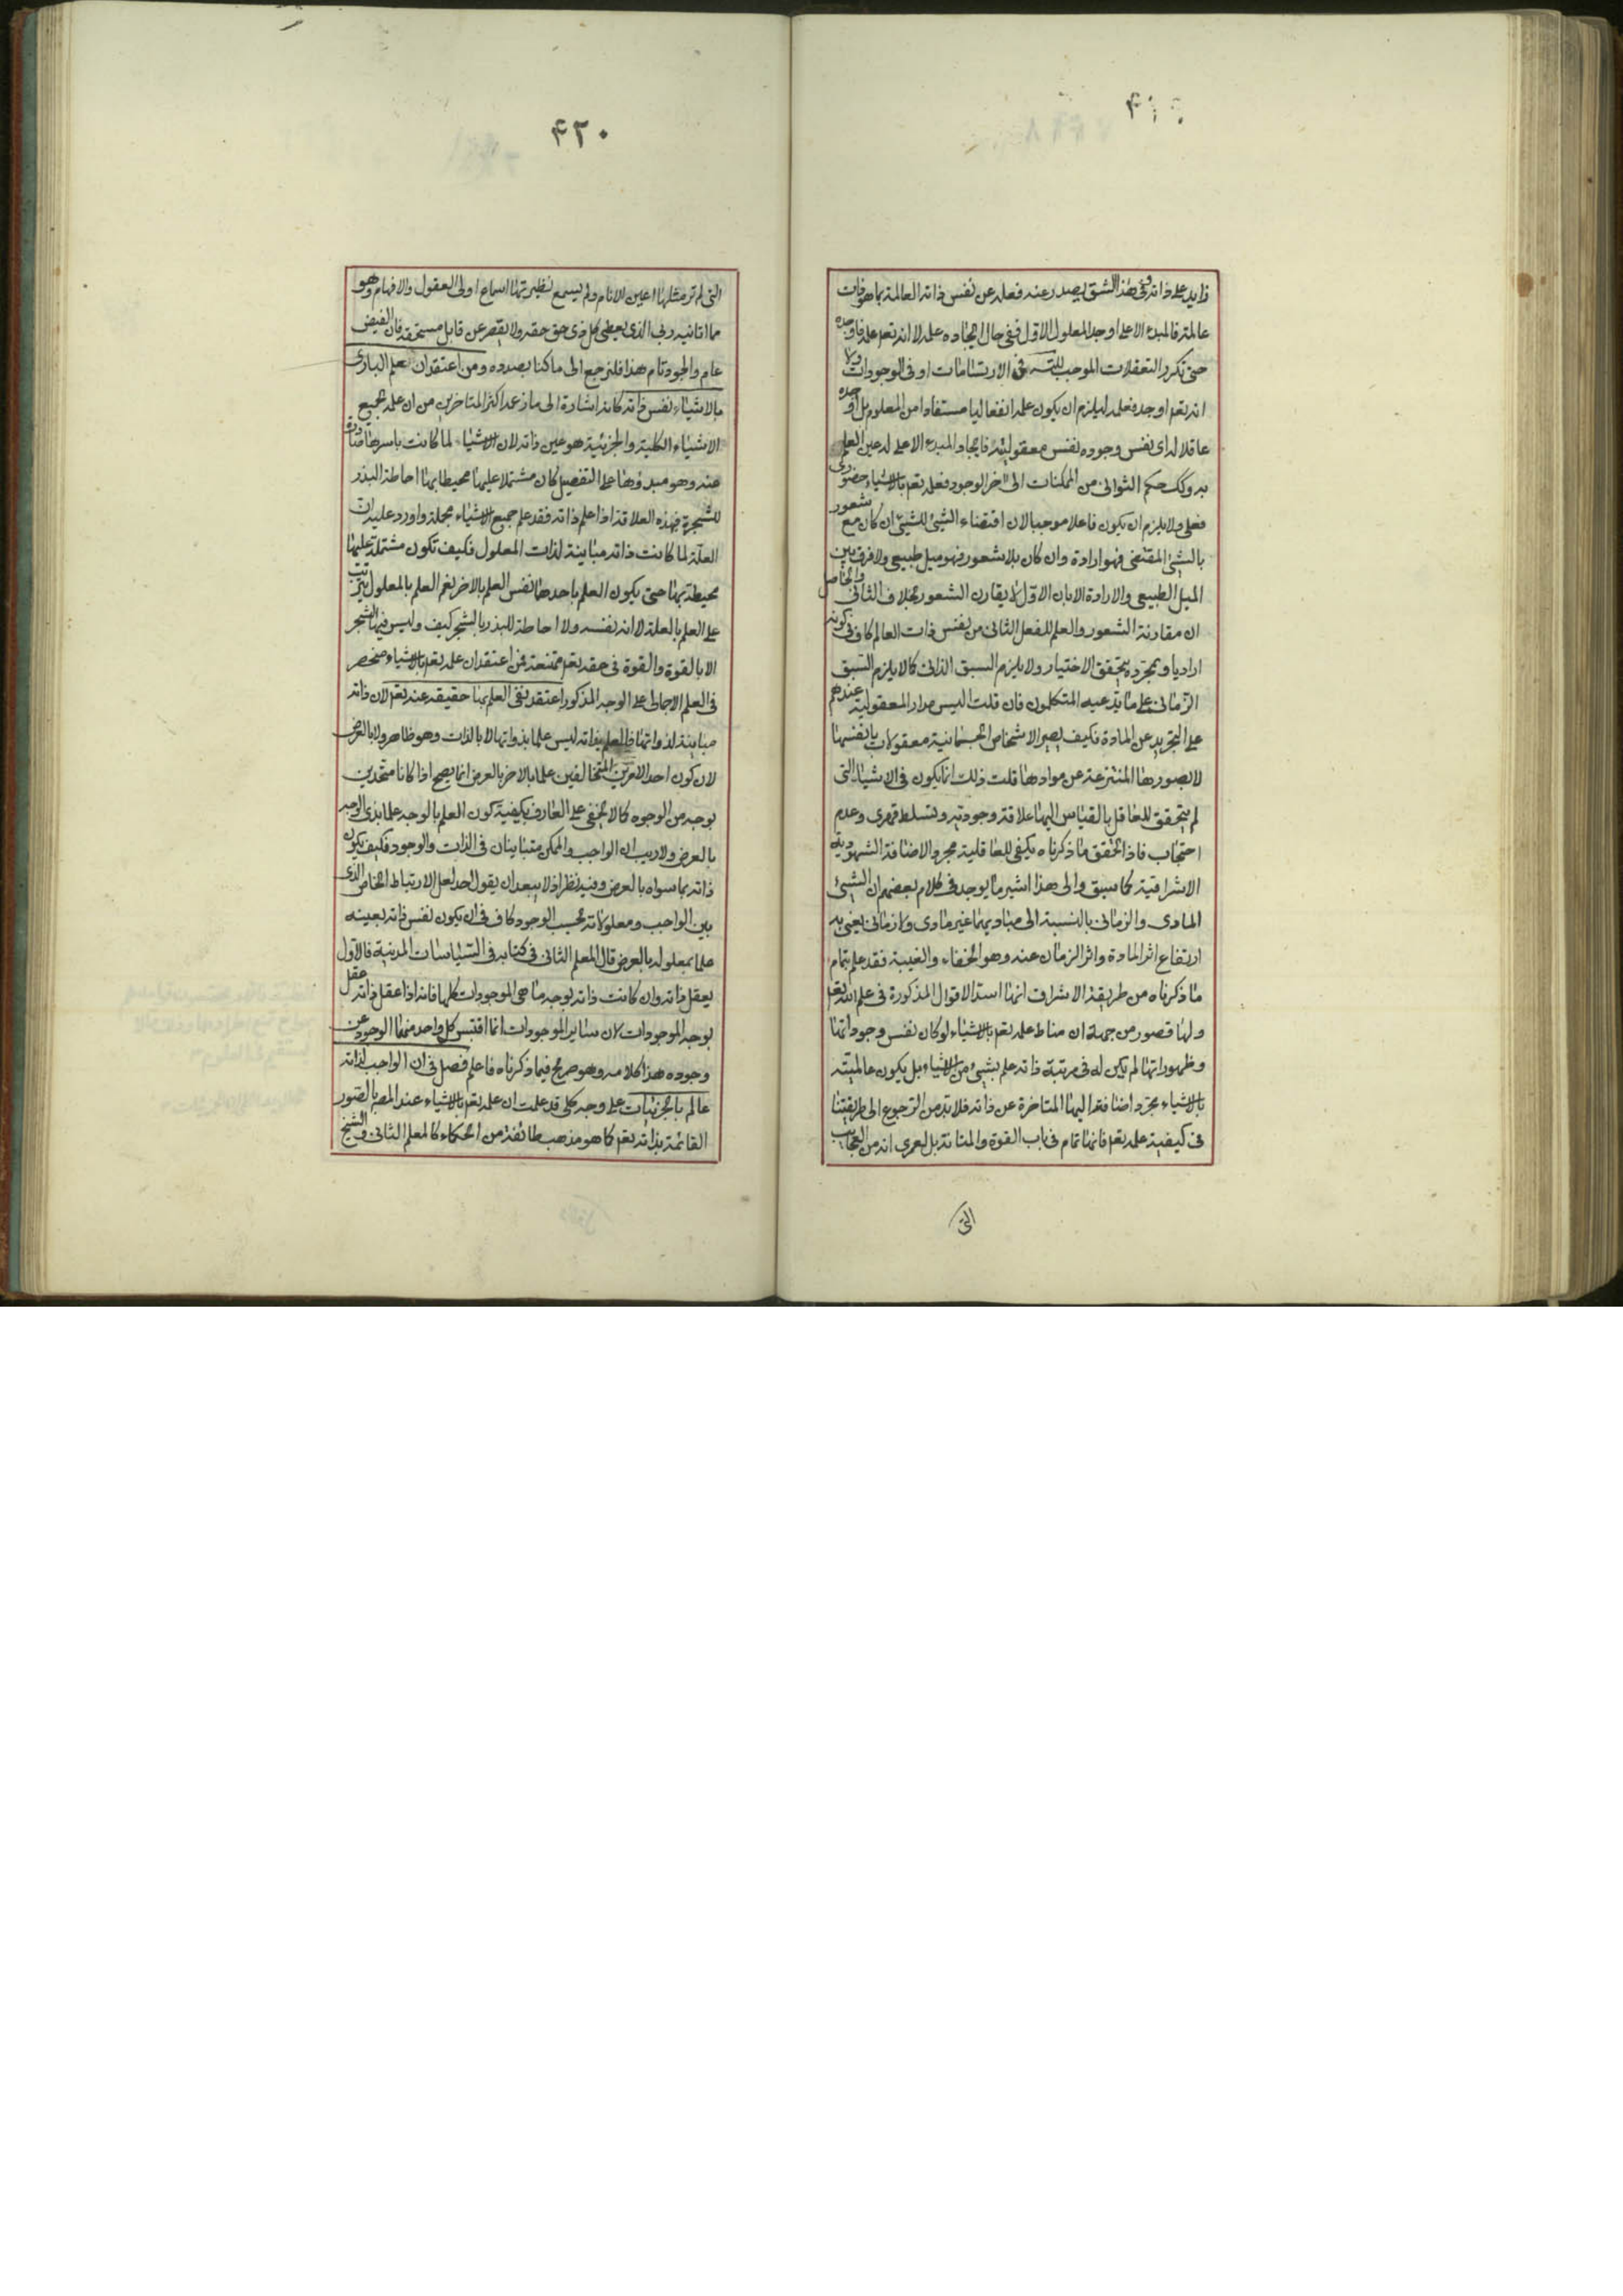 زايد على ذاته ففى هذا الشق يصدر عنه فعله عن نفس ذاته العالمة بما هو ذات
عالمة فالمبدء الاعلى اوجد المعلول الاول ففى حال ايجاده علمه لا انه تعم علمه فاوجده
حتى تكرر التعقلات الموجب للتسه فى الارتسامات او فى الوجودات ولا
انه تعم اوجده فعلمه ليلزم ان يكون علمه انفعاليا مستفادا من المعلوم بل اوجده
عاقلا له اى نفس وجوده نفس معقوليته فايجاد المبدء الاعلى له عين العلم
به وكك حكم الثوانى من الممكنات الى اخر الوجود فعلمه تعم بالاشياء حضورى
فعلى ولا يلزم ان يكون فاعلا موجبا لان اقتضاء الشيئ للشيئ ان كان مع شعور
بالشيئ المقتضى فهو ارادة وان كان بلا شعور فهو ميل طبيعى ولا فرق بين
الميل الطبيعى والارادة الا بان الاول لا يقارن الشعور بخلاف الثانى والحاصل
ان مقارنة الشعور والعلم للفعل الثانى من نفس ذات العالم كاف فى كونه
اراديا وبمجرده يتحقق الاختيار ولا يلزم السبق الذاتى كما لا يلزم السبق
الزمانى على ما يدعيه المتكلمون فان قلت اليس مدار المعقولية عندهم
على التجريد عن المادة فكيف يصير الاشخاص الجسمانية معقولات بانفسها
لا بصورها المنتزعة عن موادها قلت ذلك انما يكون فى الاشياء التى
لم يتحقق للعاقل بالقياس اليها علاقة وجودية وتسلط قهرى وعدم
احتجاب فاذا تحقق ما ذكرناه يكفى للعاقلية مجرد الاضافة الشهودية
الاشراقية كما سبق والى هذا اشير ما يوجد فى كلام بعضهم ان الشيئ
المادى والزمانى بالنسبة الى مباديهما غير مادى ولا زمانى يعنى به
ارتفاع اثر المادة واثر الزمان عنه وهو الخفاء والغيبة فقد علم بتمام
ما ذكرناه من طريقة الاشراف انها اسد الاقوال المذكورة فى علم الله تعم
ولها قصور من جهة ان مناط علمه تعم بالاشياء لو كان نفس وجوداتها
وظهوراتها لم يكن له فى مرتبة ذاته علم بشيئ من الاشياء بل يكون عالميته
بالاشياء مجرد اضافته اليها المتاخرة عن ذاته فلا بد من الرجوع الى طريقتنا
فى كيفية علمه تعم فانها تمام فى باب القوة والمتانة بل لعمرى انه من العجايب
التى
۴۲۰
التى لم تر مثلها اعين الانام ولم يسمع نظيرتها اسماع اولى العقول والافهام وهو
مما اتانيه ربى الذى يعطى كل ذى حق حقه ولا يقصر عن قابل مستحقه فان الفيض
عام والجود تام هذا فلنرجع الى ما كنا بصدده ومن اعتقد ان تعلم البارى
بالاشياء نفس ذاته كانه اشارة الى ما زعمه اكثر المتاخرين من ان علمه بجميع
الاشياء الكلية والجزئية هو عين ذاته لان الاشياء لما كانت باسرها صادرة
عنه وهو مبدؤها على التفصيل كان مشتملا عليها محيطا بها احاطة البذر
للشجرة فهذه العلاقة اذا علم ذاته فقد علم جميع الاشياء مجملة واورد عليه ان
العلة لما كانت ذاته مباينة لذات المعلول فكيف تكون مشتملة عليها
محيطة بها حتى يكون العلم باحدهما نفس العلم بالاخر نعم العلم بالمعلول يترتب
على العلم بالعلة لا انه نفسه ولا احاطة للبذر بالشجر كيف وليس فيها الشجر
الا بالقوة والقوة فى حقه تعم ممتنعة فمن اعتقد ان علمه تعم بالاشياء منحصر
فى العلم الاجمالى على الوجه المذكور اعتقد نفى العلم بها حقيقة عنه تعم لان ذاته
مباينة لذواتها فالعلم بذاته ليس علما بذواتها لا بالذات وهو ظاهر ولا بالعرض
لان كون احد الامرين المتخالفين علما بالاخر بالعرض انما يصح اذا كانا متحدين
بوجه من الوجوه كما لا يخفى على العارف بكيفية كون العلم بالوجه علما بذى الوجه
بالعرض ولا ريب ان الواجب والممكن متباينان فى الذات والوجود فكيف يكون
ذاته بما سواه بالعرض وفيه نظر اذ لا يبعد ان يقول احد لعل الارتباط الخاص الذى
بين الواجب ومعلولاته بحسب الوجود كاف فى ان يكون نفس ذاته بعينه
علما بمعلوله بالعرض قال المعلم الثانى فى كتابه فى السياسات المدنية فالاول
يعقل ذاته وان كانت ذاته بوجه ما هى الموجودات كلها فانه اذا عقل ذاته عقل
بوجه الموجودات لان ساير الموجودات انما اقتبس كل واحد منها الوجود عن
وجوده هذا كلامه وهو صريح فيما ذكرناه فاعلم فصل فى ان الواجب لذاته
عالم بالجزئيات على وجه كلى قد علمت ان علمه تعم بالاشياء عند المص بالصور
القائمة بذاته تعم كما هو مذهب طائفة من الحكماء كالمعلم الثانى والشيخ